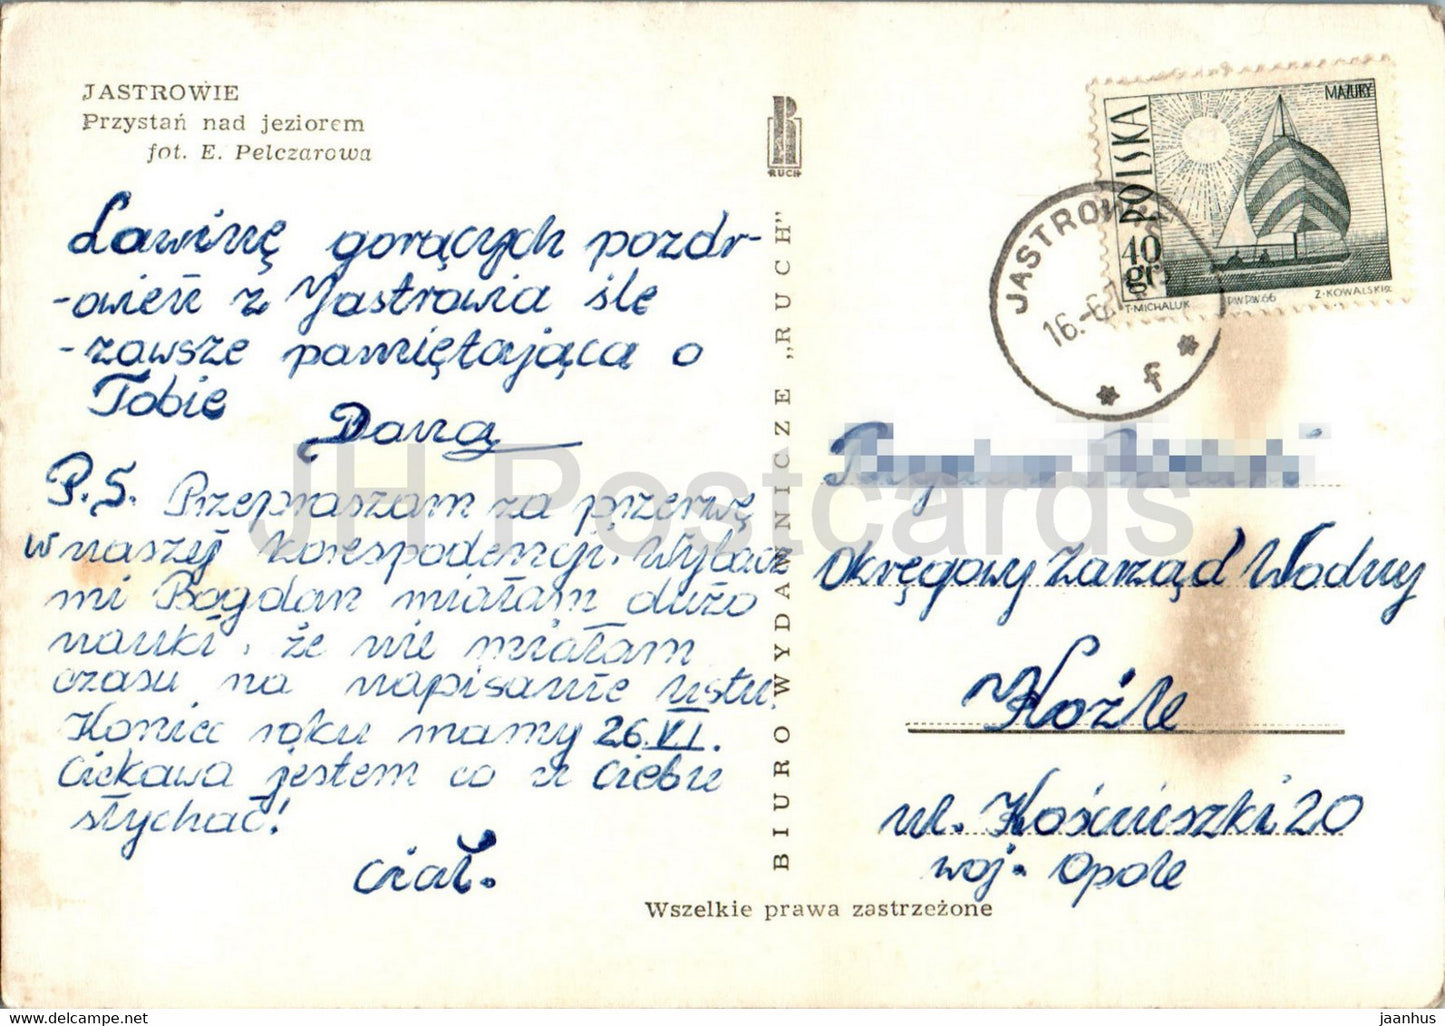 JASTROWIE
Przystań nad jeziorem
fot. E. Pelczarowa
Lawinę gorących pozdr-
-owień z Jastrowia śle
-zawsze pamiętająca o
Tobie
Dana
P.S. Przepraszam za przerwę
w naszej korespodencji. Wybacz
mi Bogdan miałam dużo
nauki, że nie miałam
czasu na napisanie listu.
Koniec roku mamy 26.VI.
Ciekawa jestem co u Ciebie
słychać!
Ciał.
RUCH
BIURO WYDAWNICZE „RUCH"
Wszelkie prawa zastrzeżone
POLSKA
MAZURY
40
gr
T. MICHALUK PWPW.66 Z. KOWALSKI
JASTROWIE
16.-6.
f
Okręgowy Zarząd Wodny
Koźle
ul. Kościuszki 20
woj. Opole
JH Postcards
jh-postcards.com
jaanhus / https://www.delcampe.net